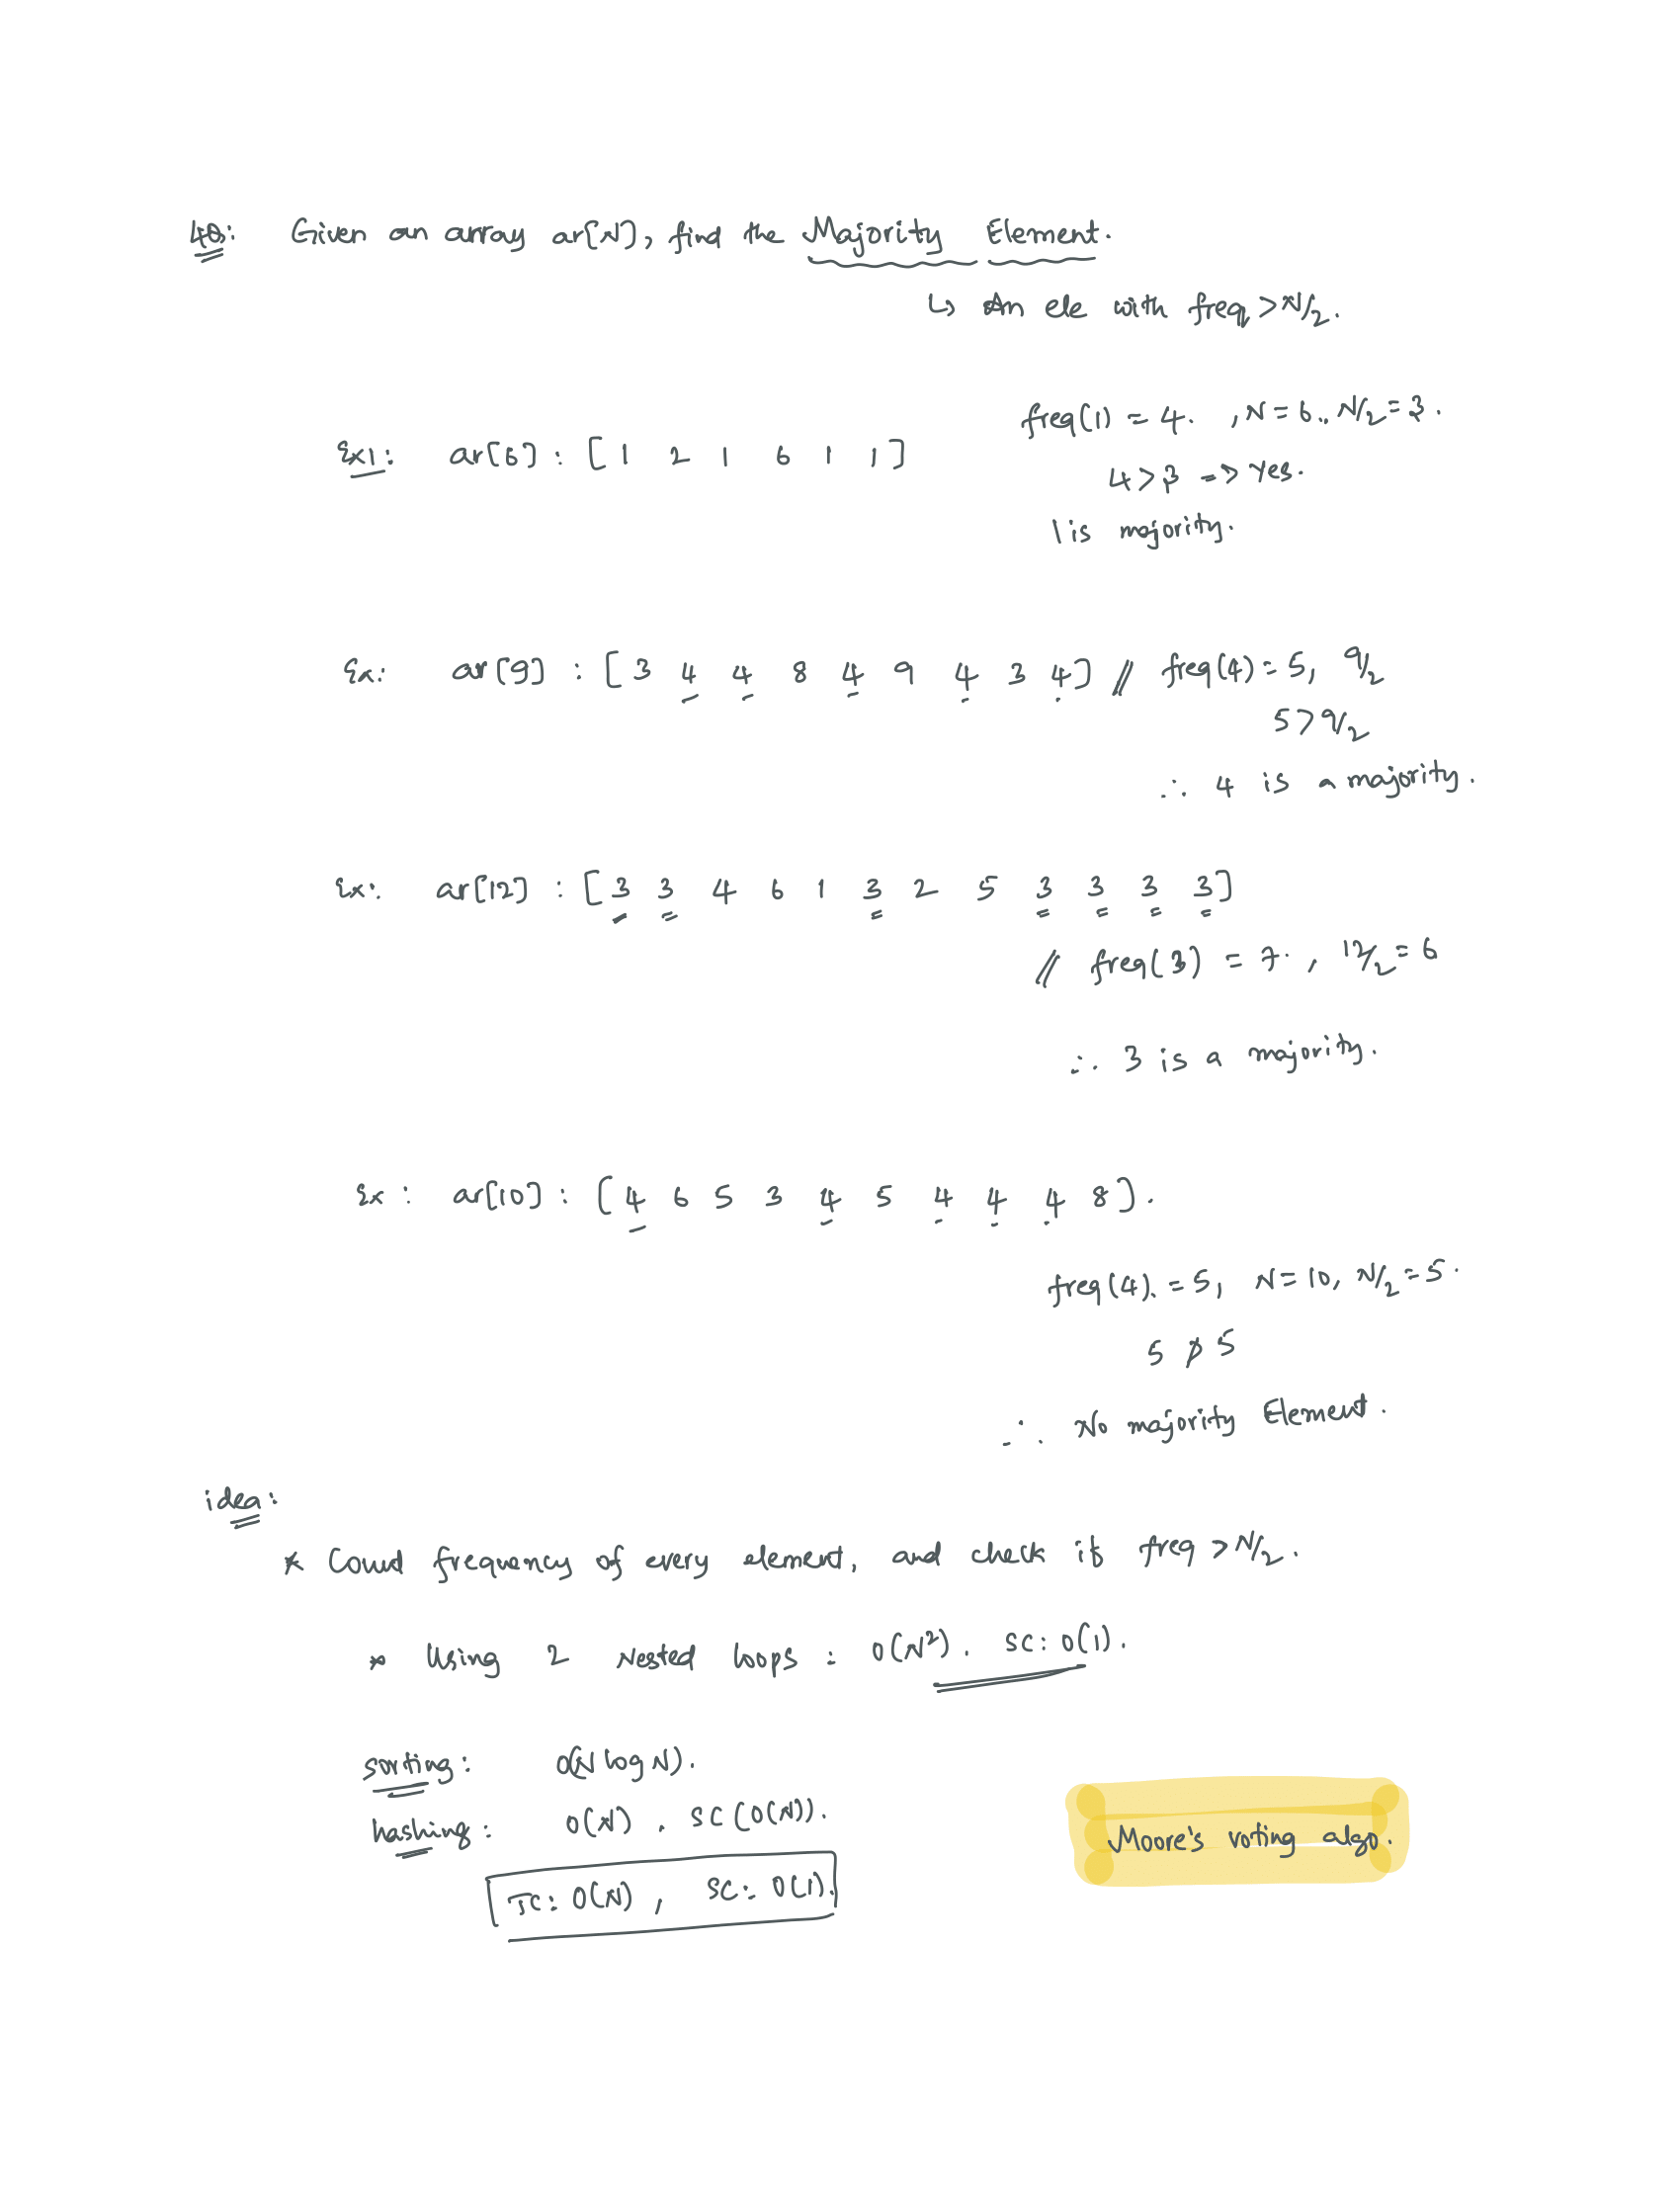 4Q: Given an array ar[N], find the Majority Element.
↳ An ele with freq > N/2.
Ex1: ar[6] : [1 2 1 6 1 1]
freq(1) = 4. , N = 6., N/2 = 3.
4 > 3 => Yes.
1 is majority.
Ex: ar[9] : [3 4 4 8 4 9 4 3 4] // freq(4) = 5, 9/2
5 > 9/2
∴ 4 is a majority.
Ex: ar[12] : [3 3 4 6 1 3 2 5 3 3 3 3]
// freq(3) = 7. , 12/2 = 6
∴ 3 is a majority.
Ex : ar[10] : [4 6 5 3 4 5 4 4 4 8].
freq(4). = 5, N = 10, N/2 = 5.
5 ≯ 5
∴ No majority Element.
idea:
* Count frequency of every element, and check if freq > N/2.
* Using 2 Nested loops : O(N²). SC: O(1).
sorting: O(N log N).
hashing: O(N) . SC (O(N)).
TC: O(N) , SC: O(1).
Moore's voting algo.